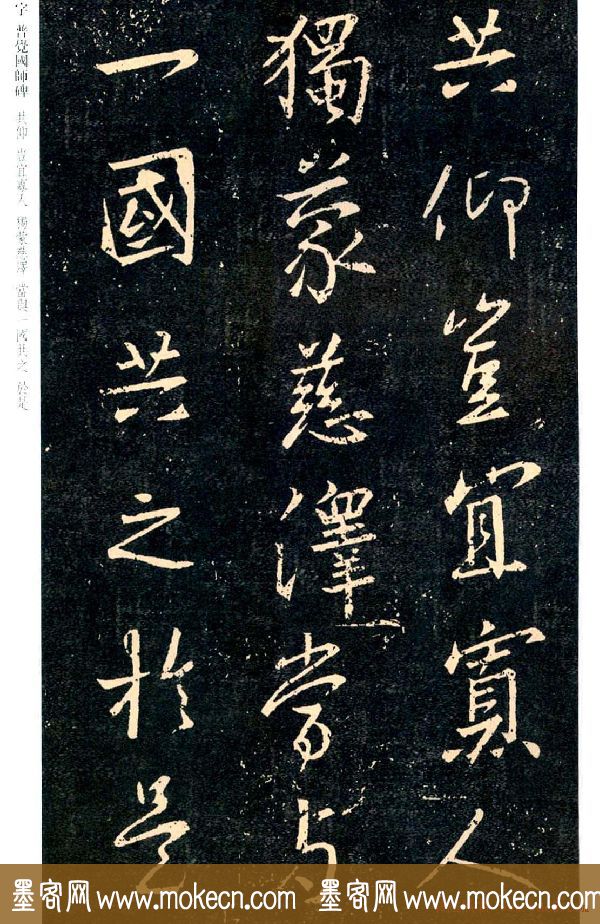 共仰豈宜寡人
獨蒙慈澤當與
一國共之於是
字 普覺國師碑 共仰 豈宜寡人 獨蒙慈澤 當與一國共之 於是
墨客网 www.mokecn.com 墨客网 www.mokecn.com